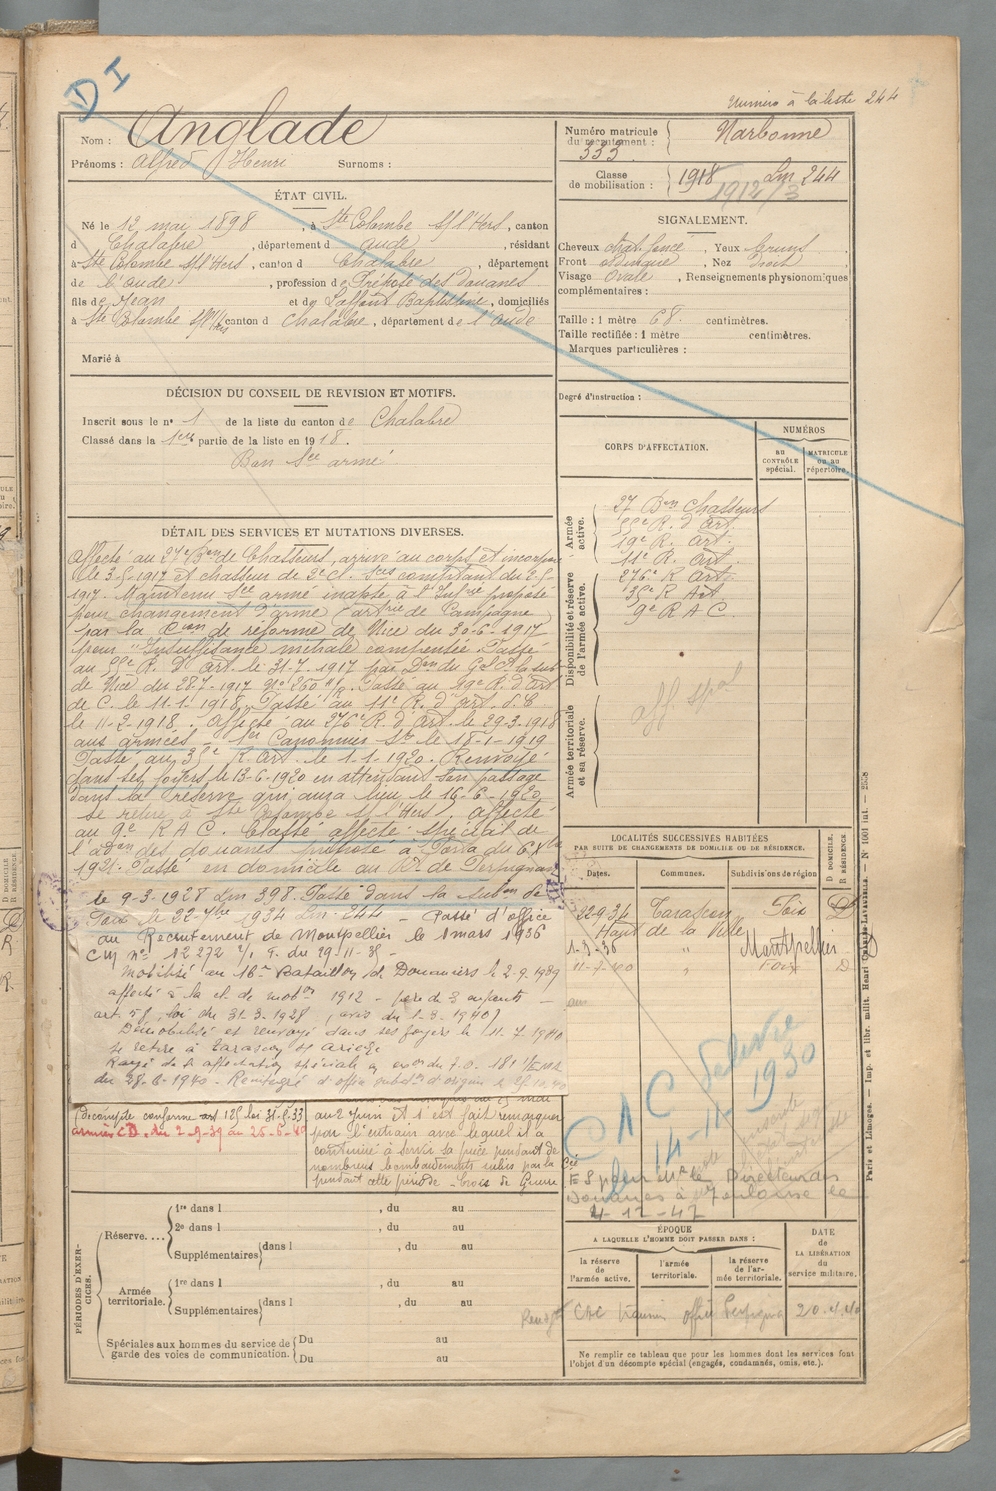 D I
Numéro à la liste 244
Nom : Anglade
Prénoms : Alfred Henri Surnoms :
Numéro matricule du recrutement : 333 Narbonne
Classe de mobilisation : 1918 Lm 244
1912/3
ÉTAT CIVIL.
Né le 12 mai 1898, à Ste Colombe s/ l'Hers, canton
d Chalabre, département d Aude, résidant
à Ste Colombe s/ l'Hers, canton d Chalabre, département
de l'Aude, profession de Préposé des douanes
fils de Jean et de Baptistine, domiciliés
à Ste Colombe s/ l'Hers canton d Chalabre, département de l'Aude
Marié à
SIGNALEMENT.
Cheveux chat. foncé, Yeux bruns
Front , Nez droit
Visage Ovale, Renseignements physionomiques
complémentaires :
Taille : 1 mètre 68 centimètres.
Taille rectifiée : 1 mètre centimètres.
Marques particulières :
Degré d'instruction :
DÉCISION DU CONSEIL DE REVISION ET MOTIFS.
Inscrit sous le n° 1 de la liste du canton de Chalabre
Classé dans la 1ère partie de la liste en 1918.
Bon Sce armé
CORPS D'AFFECTATION.
NUMÉROS
AU CONTRÔLE spécial.
MATRICULE ou au répertoire.
Armée active.
Disponibilité et réserve de l'armée active.
Armée territoriale et sa réserve.
27 Bon Chasseurs
R. d'Art.
19e R. Art.
11e R. Art
276e R Art.
35e R Art
9e R A C.
aff. spal
DÉTAIL DES SERVICES ET MUTATIONS DIVERSES.
Affecté au 27e Bon de Chasseurs, arrivé au corps et incorporé
le 3-5-1917 et chasseur de 2e cl. Sces comptant du 2-5-
1917. Maintenu Sce armé inapte à l'Infrie proposé
pour changement d'arme (artrie de Campagne
par la Cion de réforme de Nice du 30-6-1917
pour "Insuffisance mitrale compensée. Passé
au R. D'Art. le 31-7-1917 par Don du Gal Ct la sub
de Nice du 28-7-1917 N° 260 . Passé au 19e R. d'Art
de C. le 11-1-1918. Passé au 11e R. d'art.
le 11-2-1918. Affecté au 276e R. d'Art. le 29-3-1918
aux armées. 1er Canonnier Sce le 18-1-1919
Passé au 35e R. Art. le 1-1-1920. Renvoyé
dans ses foyers le 13-6-1920 en attendant son passage
dans la réserve qui aura lieu le 16-6-1920
se retire à Ste Colombe s/ l'Hers. Affecté
au 9e R A C. Classé affecté spécial de
l'adon des douanes préposé à Porta du
1921. Passé en domicile au Bt de Perpignan
le 9-3-1928 Lm 398. Passé dans la subon de
Foix le 22-7bre 1934 Lm. 244 - Passé d'office
au Recrutement de Montpellier le 1 mars 1936
CM n° 12272 1/ du 29-11-35 -
Mobilisé au 16me Bataillon de Douaniers le 2-9-1939
affecté à la cl. de mobon 1912 - père de 3 enfants -
art. 58, loi du 31-3-1928, avis du 1-3-1940)
Démobilisé et renvoyé dans ses foyers le 11.7.1940
se retire à Tarascon s/ Ariège
Rayé de l'affectation spéciale
du 28-6-1940 -
Décompte conforme art 125 loi 31-3-33
armées CD. du 2-9-39 au 25-6-40
au 2 juin et s'est fait remarquer
par l'entrain avec lequel il a
continué à servir sa pièce pendant de
nombreux bombardements subis par la Cie
pendant cette période - Croix de Guerre
LOCALITÉS SUCCESSIVES HABITÉES
PAR SUITE DE CHANGEMENTS DE DOMICILE OU DE RÉSIDENCE.
Dates. Communes. Subdivisions de région
D DOMICILE R RÉSIDENCE
22-9-34 Tarascon Foix D
Haut de la Ville
1-3-36 " Montpellier D
11-7-40 " Foix D
CAC
14-11-1930
E S pour Mr le Directeur des
Douanes à Toulouse le
4-12-47
ÉPOQUE
A LAQUELLE L'HOMME DOIT PASSER DANS :
la réserve de l'armée active.
l'armée territoriale.
la réserve de l'armée territoriale.
DATE de LA LIBÉRATION du service militaire.
Perpignan
Ne remplir ce tableau que pour les hommes dont les services font
l'objet d'un décompte spécial (engagés, condamnés, omis, etc.).
PÉRIODES D'EXERCICES.
Réserve....
1re dans l , du au
2e dans l , du au
Supplémentaires dans l , du au
Armée territoriale.
1re dans l , du au
Supplémentaires dans l , du au
Spéciales aux hommes du service de garde des voies de communication.
Du au
Du au
Paris et Limoges. — Imp. et libr. milit. Henri CHARLES-LAVAUZELLE. — N° 1001 int. — 2558